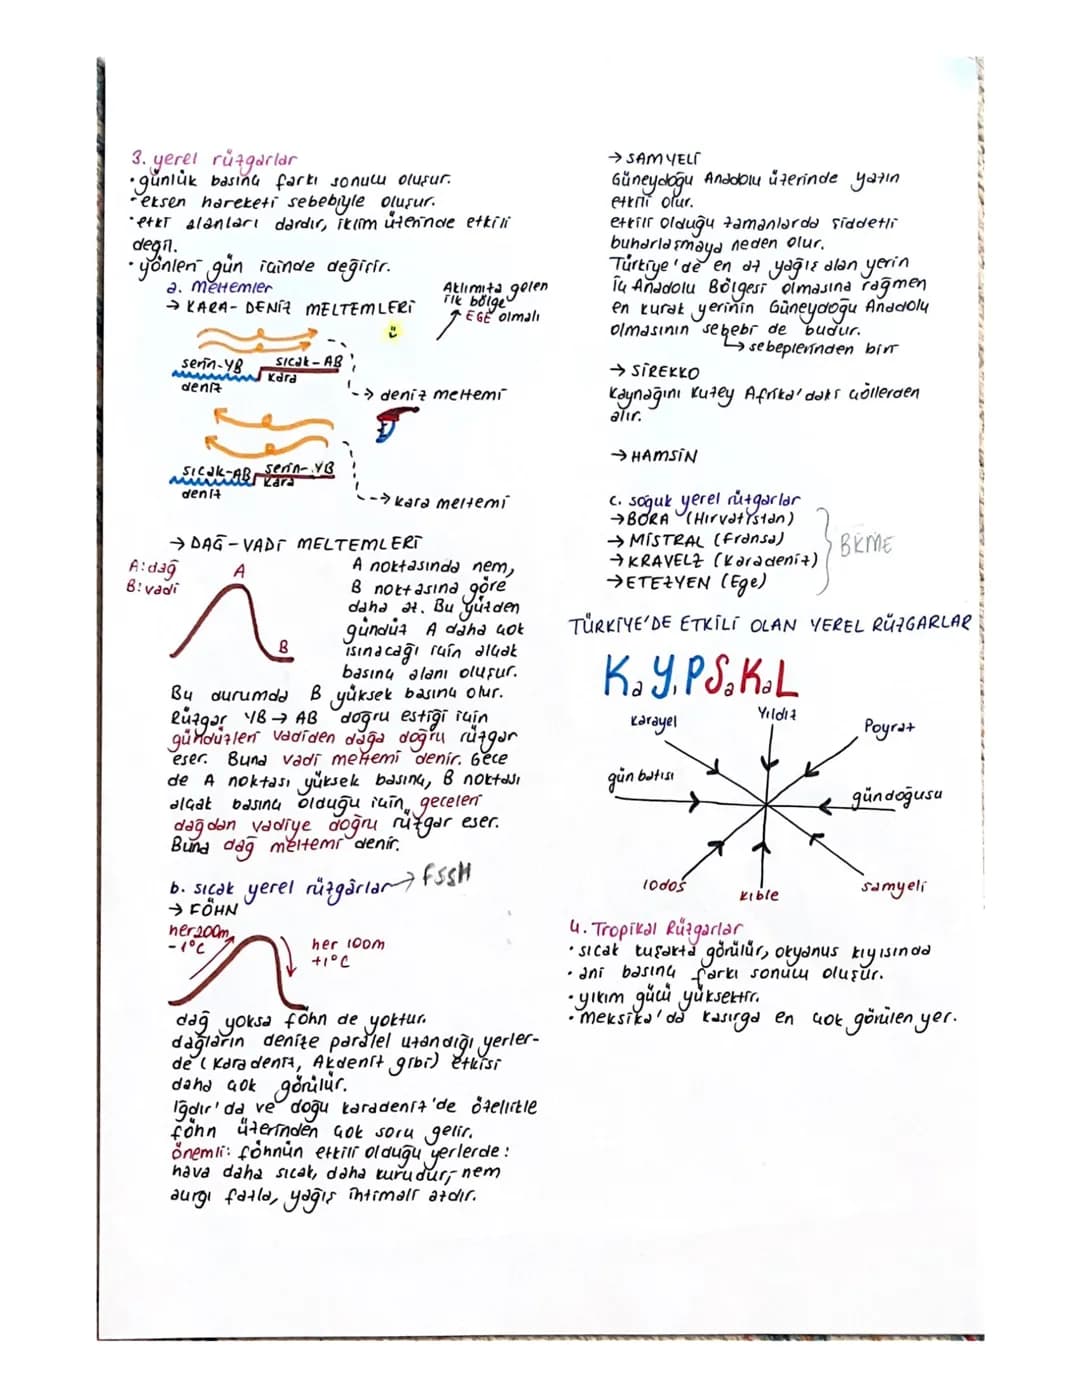 3. yerel rüzgarlar
• günlük basınç farkı sonucu oluşur.
• eksen hareketi sebebiyle oluşur.
• etki alanları dardır, iklim üzerinde etkili
değil.
• yönleri gün içinde değişir.
a. meltemler
→ KARA-DENİZ MELTEMLERİ
Aklımıza gelen
ilk bölge
EGE olmalı
serin-YB
sıcak-AB
deniz
kara
→ deniz meltemi
sıcak-AB
serin-YB
deniz
kara
→ kara meltemi
→ DAĞ-VADİ MELTEMLERİ
A: dağ
B: vadi
A
B
A noktasında nem,
B noktasına göre
daha az. Bu yüzden
gündüz A daha çok
ısınacağı için alçak
basınç alanı oluşur.
Bu durumda B yüksek basınç olur.
Rüzgar YB → AB doğru estiği için
gündüzleri vadiden dağa doğru rüzgar
eser. Buna vadi meltemi denir. Gece
de A noktası yüksek basınç, B noktası
alçak basınç olduğu için geceleri
dağdan vadiye doğru rüzgar eser.
Buna dağ meltemi denir.
b. sıcak yerel rüzgârlar → FSSH
→ FÖHN
her 200m
-1°C
her 100m
+1°C
dağ yoksa föhn de yoktur.
dağların denize paralel uzandığı yerler-
de (Karadeniz, Akdeniz gibi) etkisi
daha çok görülür.
Iğdır'da ve doğu karadeniz'de özellikle
föhn üzerinden çok soru gelir.
önemli: föhnün etkili olduğu yerlerde:
hava daha sıcak, daha kurudur; nem
açığı fazla, yağış ihtimali azdır.
→ SAMYELİ
Güneydoğu Anadolu üzerinde yazın
etkili olur.
etkili olduğu zamanlarda şiddetli
buharlaşmaya neden olur.
Türkiye'de en az yağış alan yerin
İç Anadolu Bölgesi olmasına rağmen
en kurak yerinin Güneydoğu Anadolu
olmasının sebebi de budur.
→ sebeplerinden biri
→ SİREKKO
Kaynağını Kuzey Afrika'daki çöllerden
alır.
→ HAMSİN
c. soğuk yerel rüzgarlar
→ BORA (Hırvatistan)
→ MİSTRAL (Fransa)
→ KRAVELZ (Karadeniz)
→ ETEZYEN (Ege)
BKME
TÜRKİYE'DE ETKİLİ OLAN YEREL RÜZGARLAR
KaYıPSaKaL
karayel
Yıldız
Poyraz
gün batısı
gündoğusu
lodos
kıble
samyeli
4. Tropikal Rüzgarlar
• sıcak kuşakta görülür, okyanus kıyısında
• ani basınç farkı sonucu oluşur.
• yıkım gücü yüksektir.
• Meksika'da kasırga en çok görülen yer.